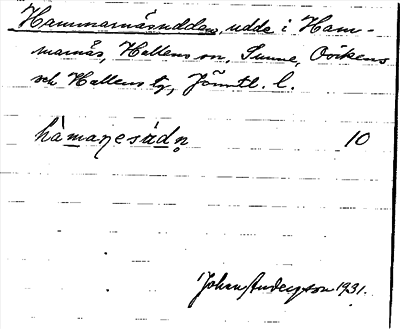 Hammarnäsudden, udde i Ham-
marnäs, Hallens sn, Sunne, Ovikens
och Hallens tg, Jämtl. l.
hàmaɳesúdn̥ 10
Johan Anderson 1931.